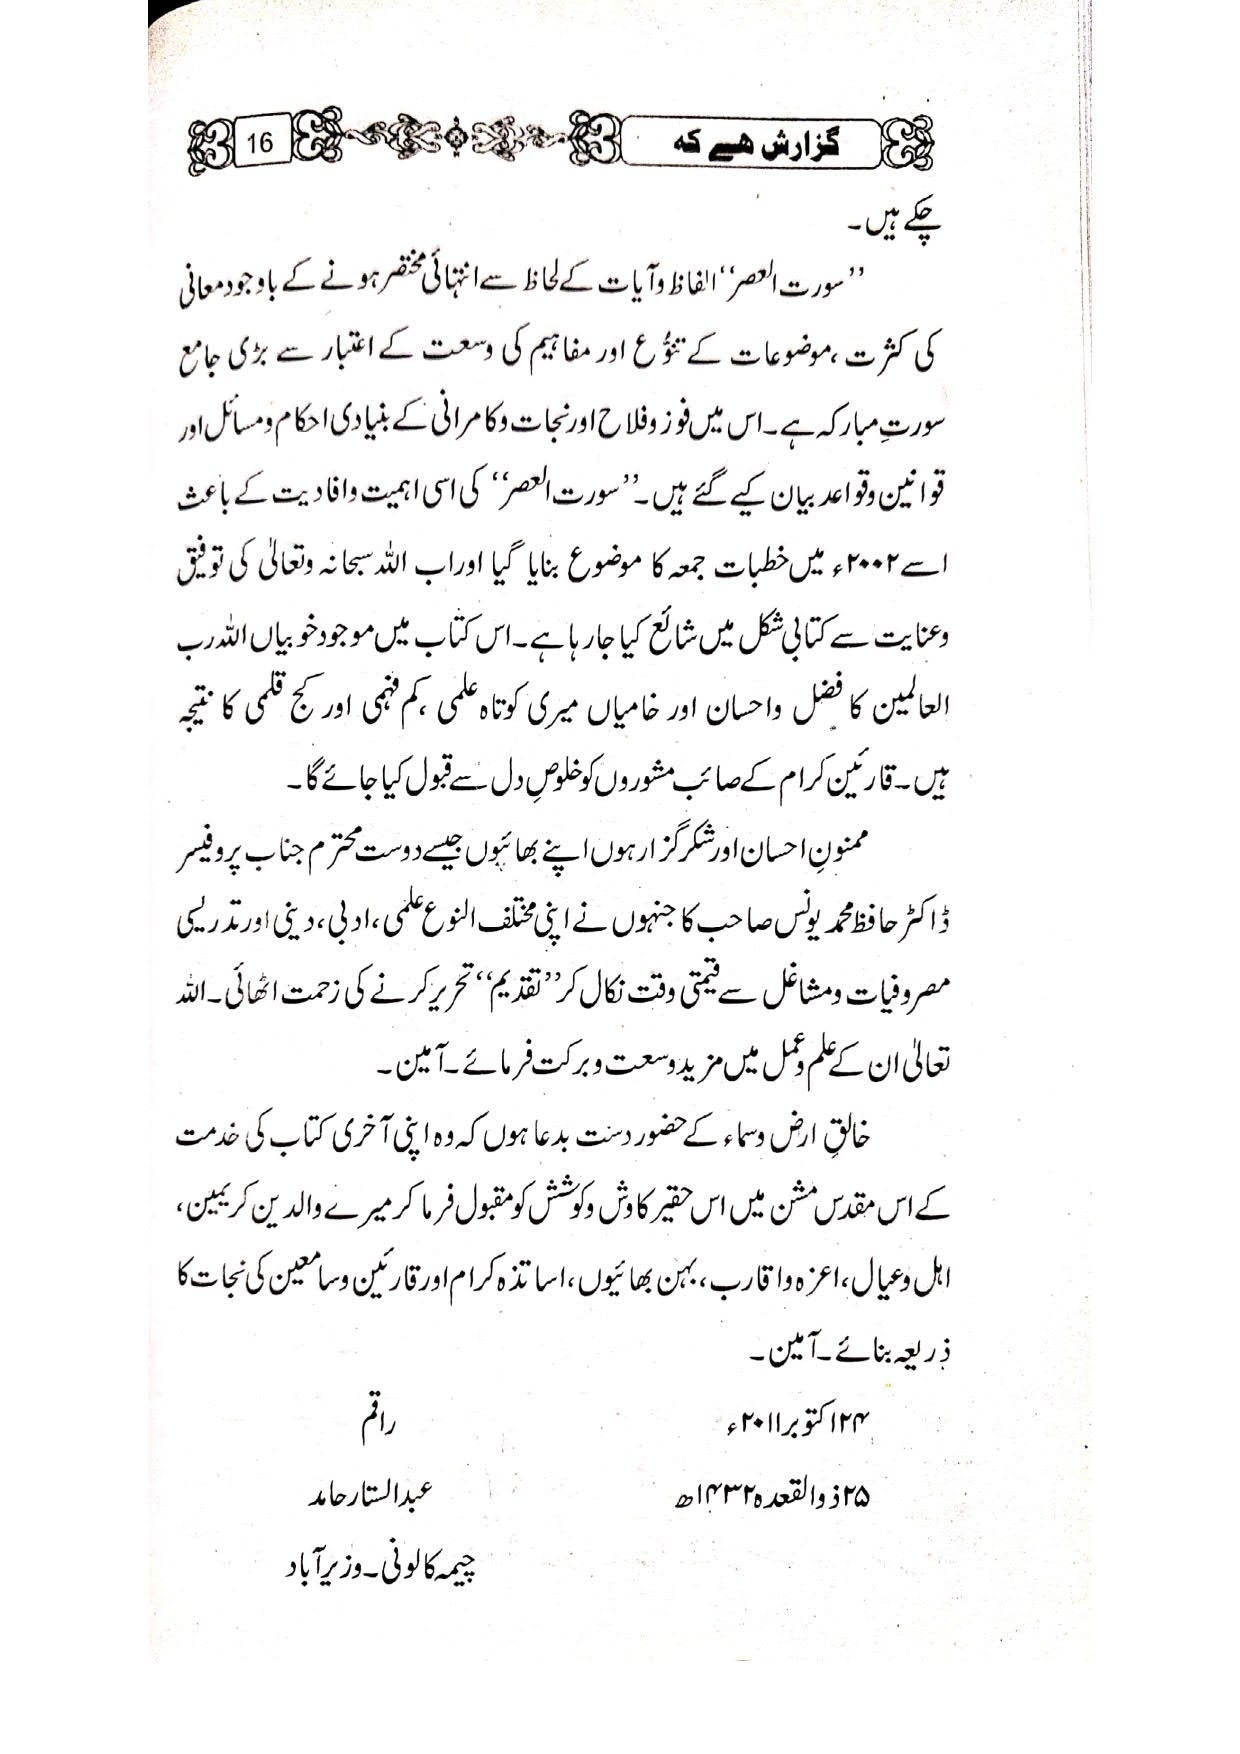 گزارش ھے کہ 16
چکے ہیں۔
’’سورت العصر‘‘ الفاظ و آیات کے لحاظ سے انتہائی مختصر ہونے کے باوجود معانی
کی کثرت ،موضوعات کے تنوُّع اور مفاہیم کی وسعت کے اعتبار سے بڑی جامع
سورتِ مبارکہ ہے۔ اس میں فوز و فلاح اور نجات و کامرانی کے بنیادی احکام و مسائل اور
قوانین و قواعد بیان کیے گئے ہیں۔ ’’سورت العصر‘‘ کی اسی اہمیت و افادیت کے باعث
اسے ۲۰۰۲ء میں خطبات جمعہ کا موضوع بنایا گیا اور اب اللہ سبحانہ وتعالیٰ کی توفیق
و عنایت سے کتابی شکل میں شائع کیا جا رہا ہے۔ اس کتاب میں موجود خوبیاں اللہ رب
العالمین کا فضل واحسان اور خامیاں میری کوتاہ علمی ،کم فہمی اور کج قلمی کا نتیجہ
ہیں۔ قارئین کرام کے صائب مشوروں کو خلوصِ دل سے قبول کیا جائے گا۔
ممنونِ احسان اور شکر گزار ہوں اپنے بھائیوں جیسے دوست محترم جناب پروفیسر
ڈاکٹر حافظ محمد یونس صاحب کا جنہوں نے اپنی مختلف النوع علمی، ادبی، دینی اور تدریسی
مصروفیات و مشاغل سے قیمتی وقت نکال کر ’’تقدیم‘‘ تحریر کرنے کی زحمت اٹھائی۔ اللہ
تعالیٰ ان کے علم و عمل میں مزید وسعت و برکت فرمائے۔ آمین۔
خالقِ ارض وسماء کے حضور دست بدعا ہوں کہ وہ اپنی آخری کتاب کی خدمت
کے اس مقدس مشن میں اس حقیر کاوش و کوشش کو مقبول فرما کر میرے والدین کریمین،
اہل و عیال، اعزہ و اقارب، بہن بھائیوں، اساتذہ کرام اور قارئین و سامعین کی نجات کا
ذریعہ بنائے۔ آمین۔
۲۴ اکتوبر ۲۰۱۱ء راقم
۲۵ ذوالقعدہ ۱۴۳۲ھ عبدالستار حامد
چیمہ کالونی۔ وزیر آباد